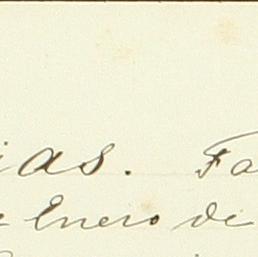 ias. Fa
e Enero de